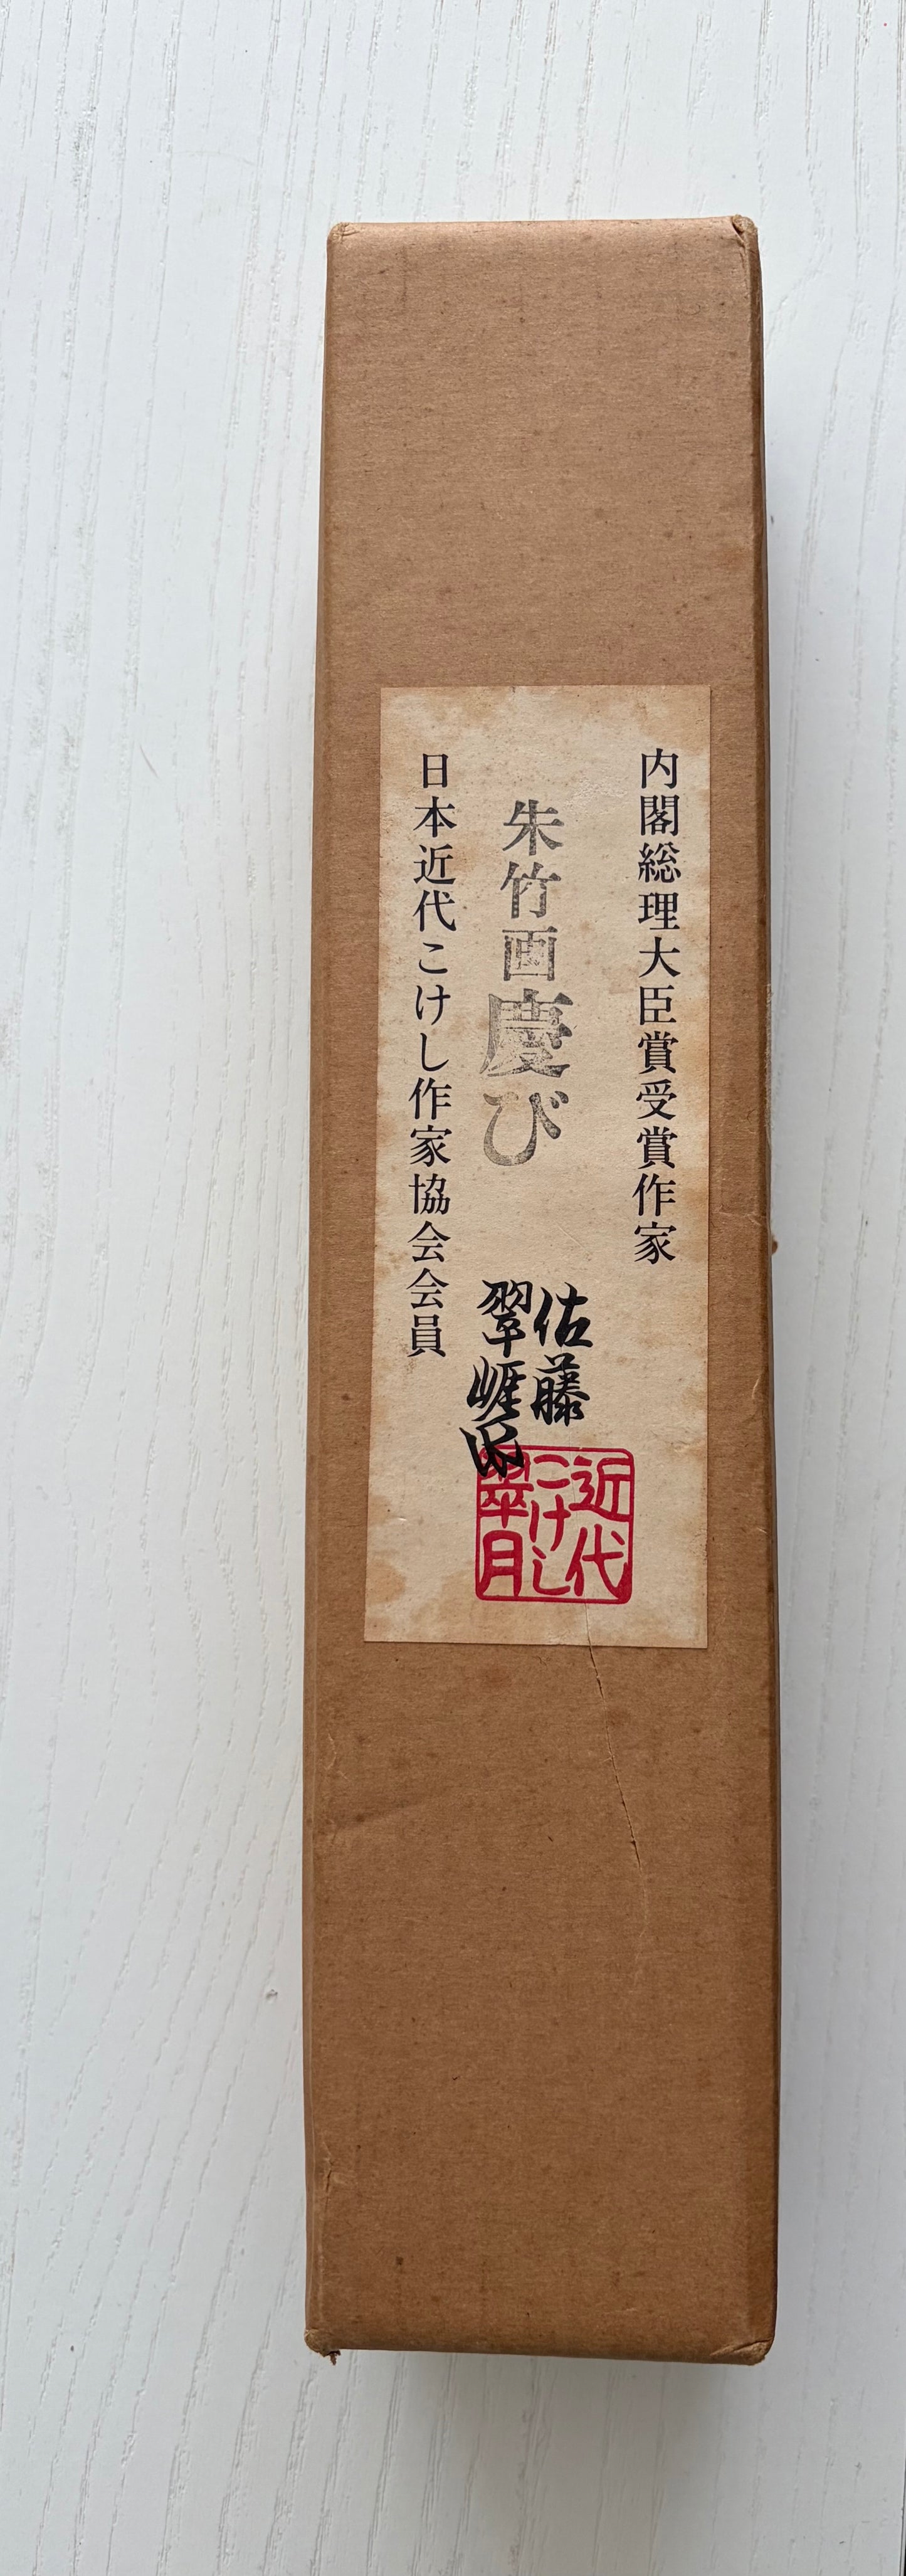 内閣総理大臣賞受賞作家
朱竹画慶び
佐藤
翠崖
近代
こけし
翠月
日本近代こけし作家協会会員